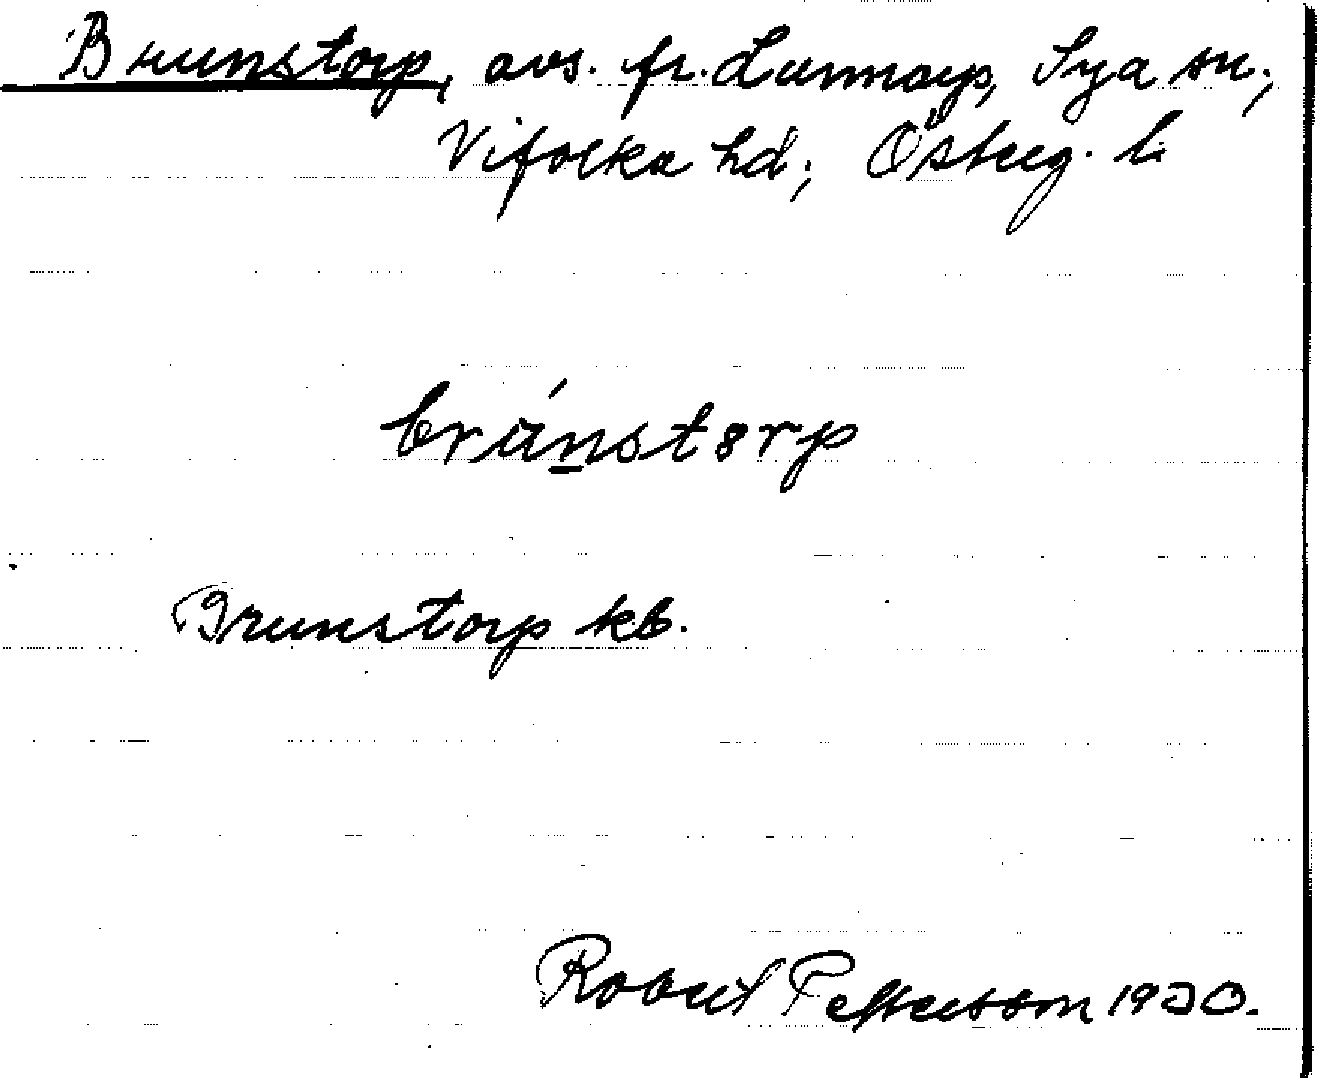 Brunstorp, avs. fr. Lunnorp, Sya sn;
Vifolka hd; Österg. l.
brúnst8rp
Brunstorp kb.
Robert Pettersson 1930.